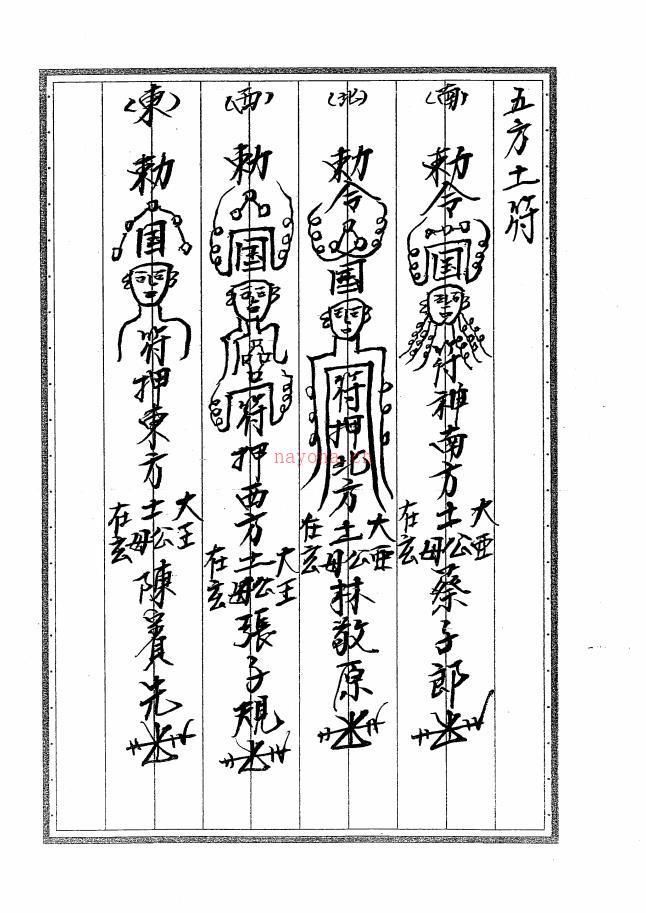 五方土符
(南)勅令囯符神南方土公母大亜在玄蔡子郎
(北)勅令囯符押北方土公母大亜在玄林敬原
(西)勅囯符押西方土公母大王在玄張子規
(東)勅囯符押東方土公母大王在玄陳賓先
nayona.cn